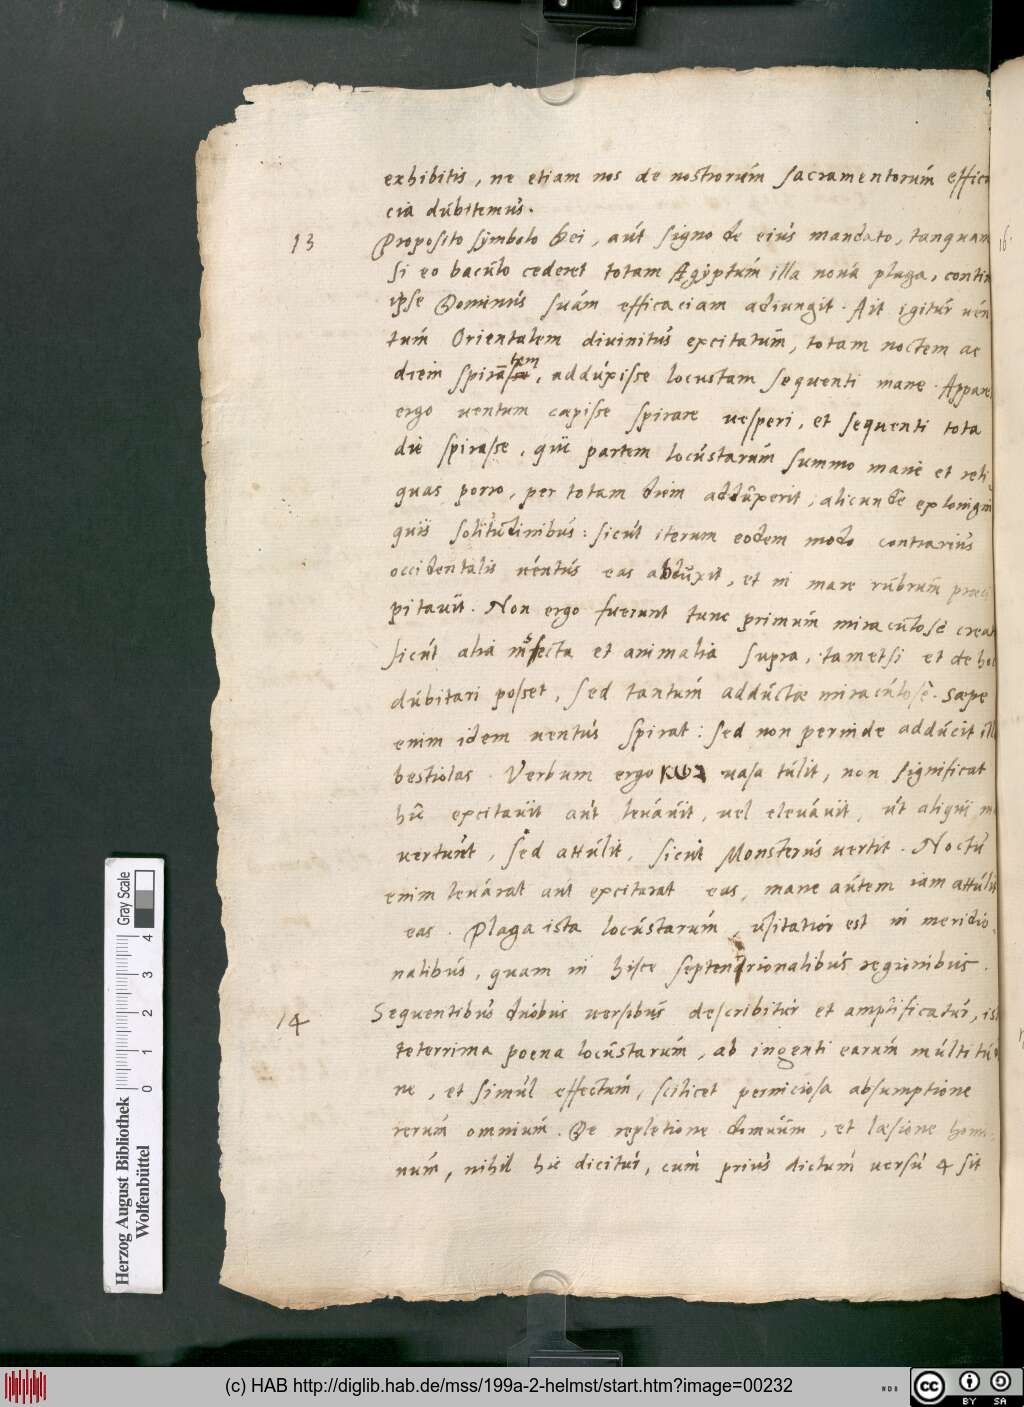 exhibitis, ne etiam nos de nostrorum sacramentorum effica
cia dubitemus.
13 Proposito symbolo Dei, aut signo de eius mandato, tanquam
si eo baculo cederet totam Ægyptum illa nova plaga,
ipse Dominus suam efficaciam adiungit. Ait igitur uen
tum Orientalem divinitus excitatum, totam noctem ac
diem spirantem, adduxisse locustam sequenti mane.
ergo uentum capisse spirare uesperi, et sequenti tota
die spirasse, qui partem locustarum summo mane et reli
quas porro, per totam diem adduxerit, alicunde ex longin
quis solitudinibus: sicut iterum eodem modo contrarius
occidentalis uentus eas abduxit, et in mare rubrum præci
pitauit. Non ergo fuerunt tunc primum miraculose creat
sicut alia insecta et animalia supra, tametsi et de hoc
dubitari posset, sed tantum adductæ miraculose. Sæpe
enim idem uentus spirat: sed non perinde adducit ill
bestiolas. Verbum ergo נשא uasa tulit, non significat
hic excitauit aut leuauit, uel eleuauit, ut aliqui
uertunt, sed attulit, sicut Monsterus uertit. Noctu
enim leuarat aut excitarat eas, mane autem iam attulit
eas. Plaga ista locustarum, usitatior est in meridio
nalibus, quam in hisce septentrionalibus regionibus.
14 Sequentibus duobus uersibus describitur et amplificatur, is
teterrima poena locustarum, ab ingenti earum multitu
ne, et simul effectum, scilicet perniciosa absumptione
rerum omnium. De repletione domuum, et læsione homi
num, nihil hic dicitur, cum prius dictum uersu 4 sit
16
Gray Scale
4
3
2
1
0
Herzog August Bibliothek
Wolfenbüttel
(c) HAB http://diglib.hab.de/mss/199a-2-helmst/start.htm?image=00232
cc BY SA